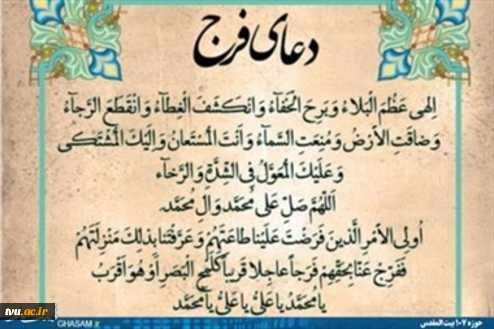 دعای فرج
اِلهی عَظُمَ الْبَلاءُ وَبَرِحَ الْخَفآءُ وَانْكَشَفَ الْغِطآءُ وَانْقَطَعَ الرَّجآءُ
وَضاقَتِ الْاَرْضُ وَمُنِعَتِ السَّمآءُ وَاَنْتَ الْمُسْتَعانُ وَاِلَیْكَ الْمُشْتَكی
وَعَلَیْكَ الْمُعَوَّلُ فِی الشِّدَّةِ وَالرَّخآءِ
اَللّهُمَّ صَلِّ عَلی مُحَمَّدٍ وَالِ مُحَمَّدٍ.
اُولِی الْاَمْرِ الَّذینَ فَرَضْتَ عَلَیْنا طاعَتَهُمْ وَعَرَّفْتَنا بِذلِكَ مَنْزِلَتَهُمْ
فَفَرِّجْ عَنّا بِحَقِّهِمْ فَرَجاً عاجِلاً قَریباً كَلَمْحِ الْبَصَرِ اَوْ هُوَ اَقْرَبُ
یا مُحَمَّدُ یا عَلِیُّ یا عَلِیُّ یا مُحَمَّدُ
tvu.ac.ir
GHASAM.ir
حوزه ۱۰۷ بیت المقدس